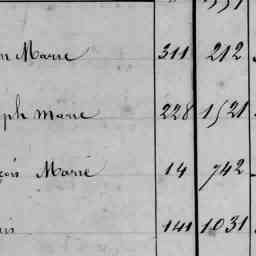 n Marie 311 212
ph Marie 228 1521
çois Marie 14 742
is 141 1031